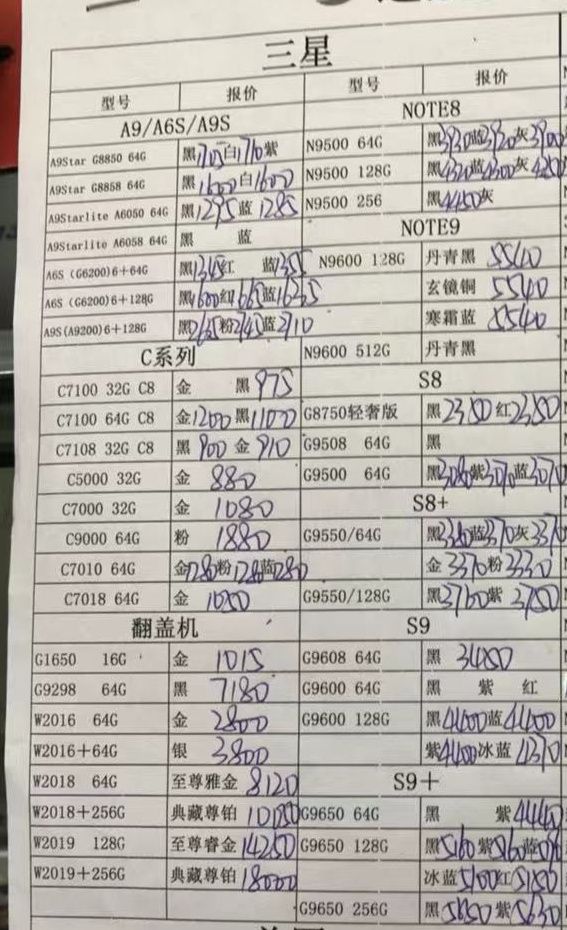 三星
型号 报价 型号 报价
A9/A6S/A9S
A9Star G8850 64G 黑1705白1710紫
A9Star G8858 64G 黑1600白1600
A9Starlite A6050 64G 黑1295蓝1285
A9Starlite A6058 64G 黑 蓝
A6S (G6200)6+64G 黑1345红 蓝1355
A6S (G6200)6+128G 黑1600红1665蓝1635
A9S(A9200)6+128G 黑2685粉2745蓝2710
C系列
C7100 32G C8 金 黑975
C7100 64G C8 金1200黑1100
C7108 32G C8 黑900金910
C5000 32G 金 880
C7000 32G 金 1080
C9000 64G 粉 1880
C7010 64G 金1280粉1280蓝1280
C7018 64G 金 1050
翻盖机
G1650 16G 金 1015
G9298 64G 黑 7180
W2016 64G 金 2800
W2016+64G 银 3800
W2018 64G 至尊雅金 8120
W2018+256G 典藏尊铂
W2019 128G 至尊睿金 14250
W2019+256G 典藏尊铂 18000
NOTE8
N9500 64G 黑3930蓝3920灰3900
N9500 128G 黑4320蓝4300灰
N9500 256 黑4450灰
NOTE9
N9600 128G 丹青黑 5540
玄镜铜 5540
寒霜蓝 5540
N9600 512G 丹青黑
S8
G8750轻奢版 黑2350红2350
G9508 64G 黑
G9500 64G 黑3080紫3070蓝3070
S8+
G9550/64G 黑3380蓝3370灰3370
金3370粉3330
G9550/128G 黑3760紫3750
S9
G9608 64G 黑 3480
G9600 64G 黑 紫 红
G9600 128G 黑4400蓝4400
紫4400冰蓝4370
S9+
G9650 64G 黑 紫4440
G9650 128G 黑5160紫5160蓝
冰蓝5100红5150
G9650 256G 黑5650紫5630